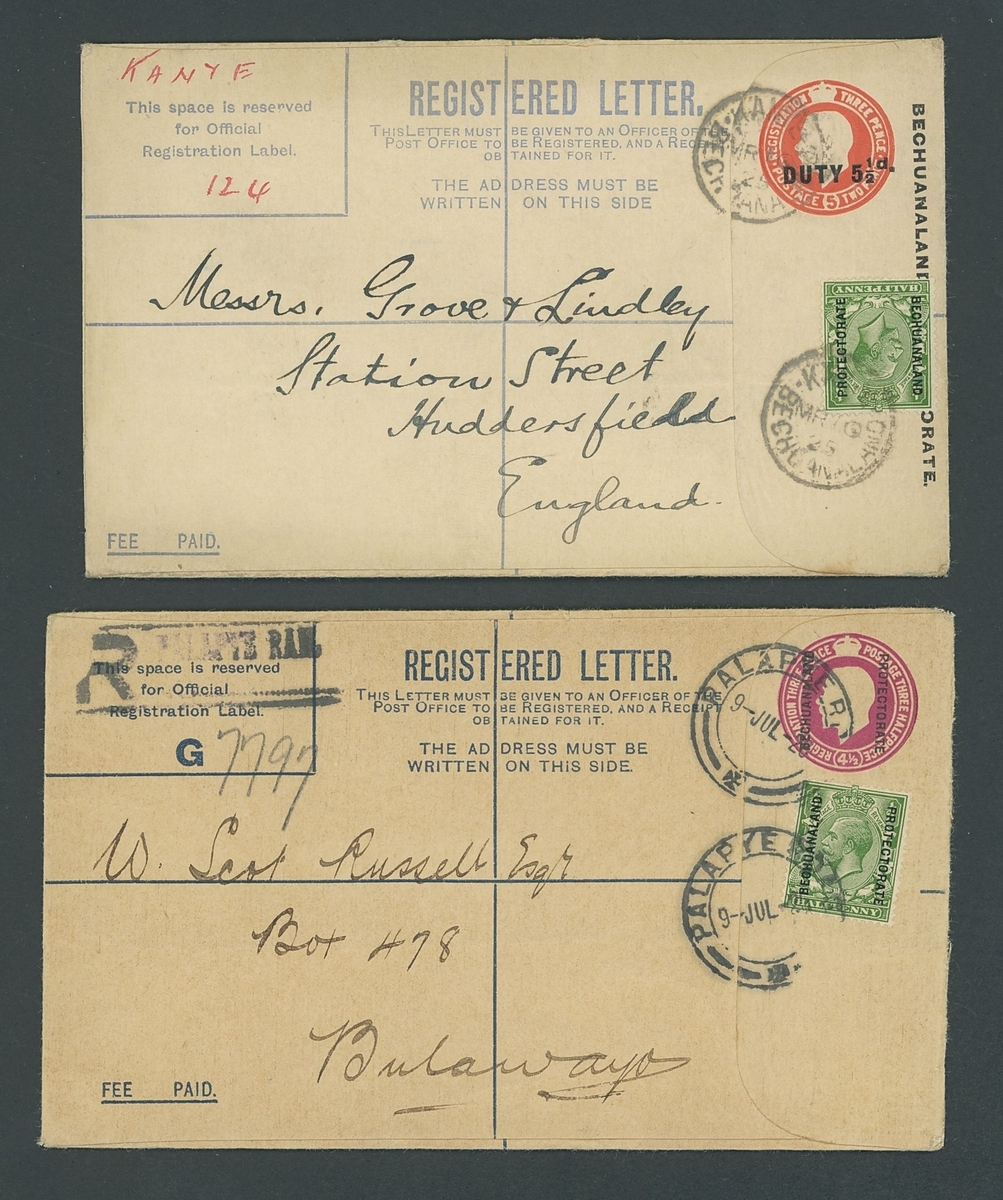 KANYE
This space is reserved
for Official
Registration Label.
124
REGISTERED LETTER.
THIS LETTER MUST BE GIVEN TO AN OFFICER OF THE
POST OFFICE TO BE REGISTERED, AND A RECEIPT
OBTAINED FOR IT.
THE ADDRESS MUST BE
WRITTEN ON THIS SIDE
REGISTRATION THREE PENCE
POSTAGE (5) TWO
DUTY 5½d.
BECHUANALAND
ORATE.
HALFPENNY
BECHUANALAND
PROTECTORATE
MR
25
BECHUANALAND
MR
25
Messrs. Grove & Lindley
Station Street
Huddersfield
England.
FEE PAID.
R
PALAPYE RAIL.
This space is reserved
for Official
Registration Label.
G 7797
REGISTERED LETTER.
THIS LETTER MUST BE GIVEN TO AN OFFICER OF THE
POST OFFICE TO BE REGISTERED, AND A RECEIPT
OBTAINED FOR IT.
THE ADDRESS MUST BE
WRITTEN ON THIS SIDE.
PALAPYE R
9-JUL-2
REGISTRATION THREE PENCE
POSTAGE THREE HALFPENCE
(4½)
BECHUANALAND
PROTECTORATE
PALAPYE R
9-JUL-
BECHUANALAND
PROTECTORATE
HALFPENNY
W. Scot Russell Esqr
Box 478
Bulawayo
FEE PAID.